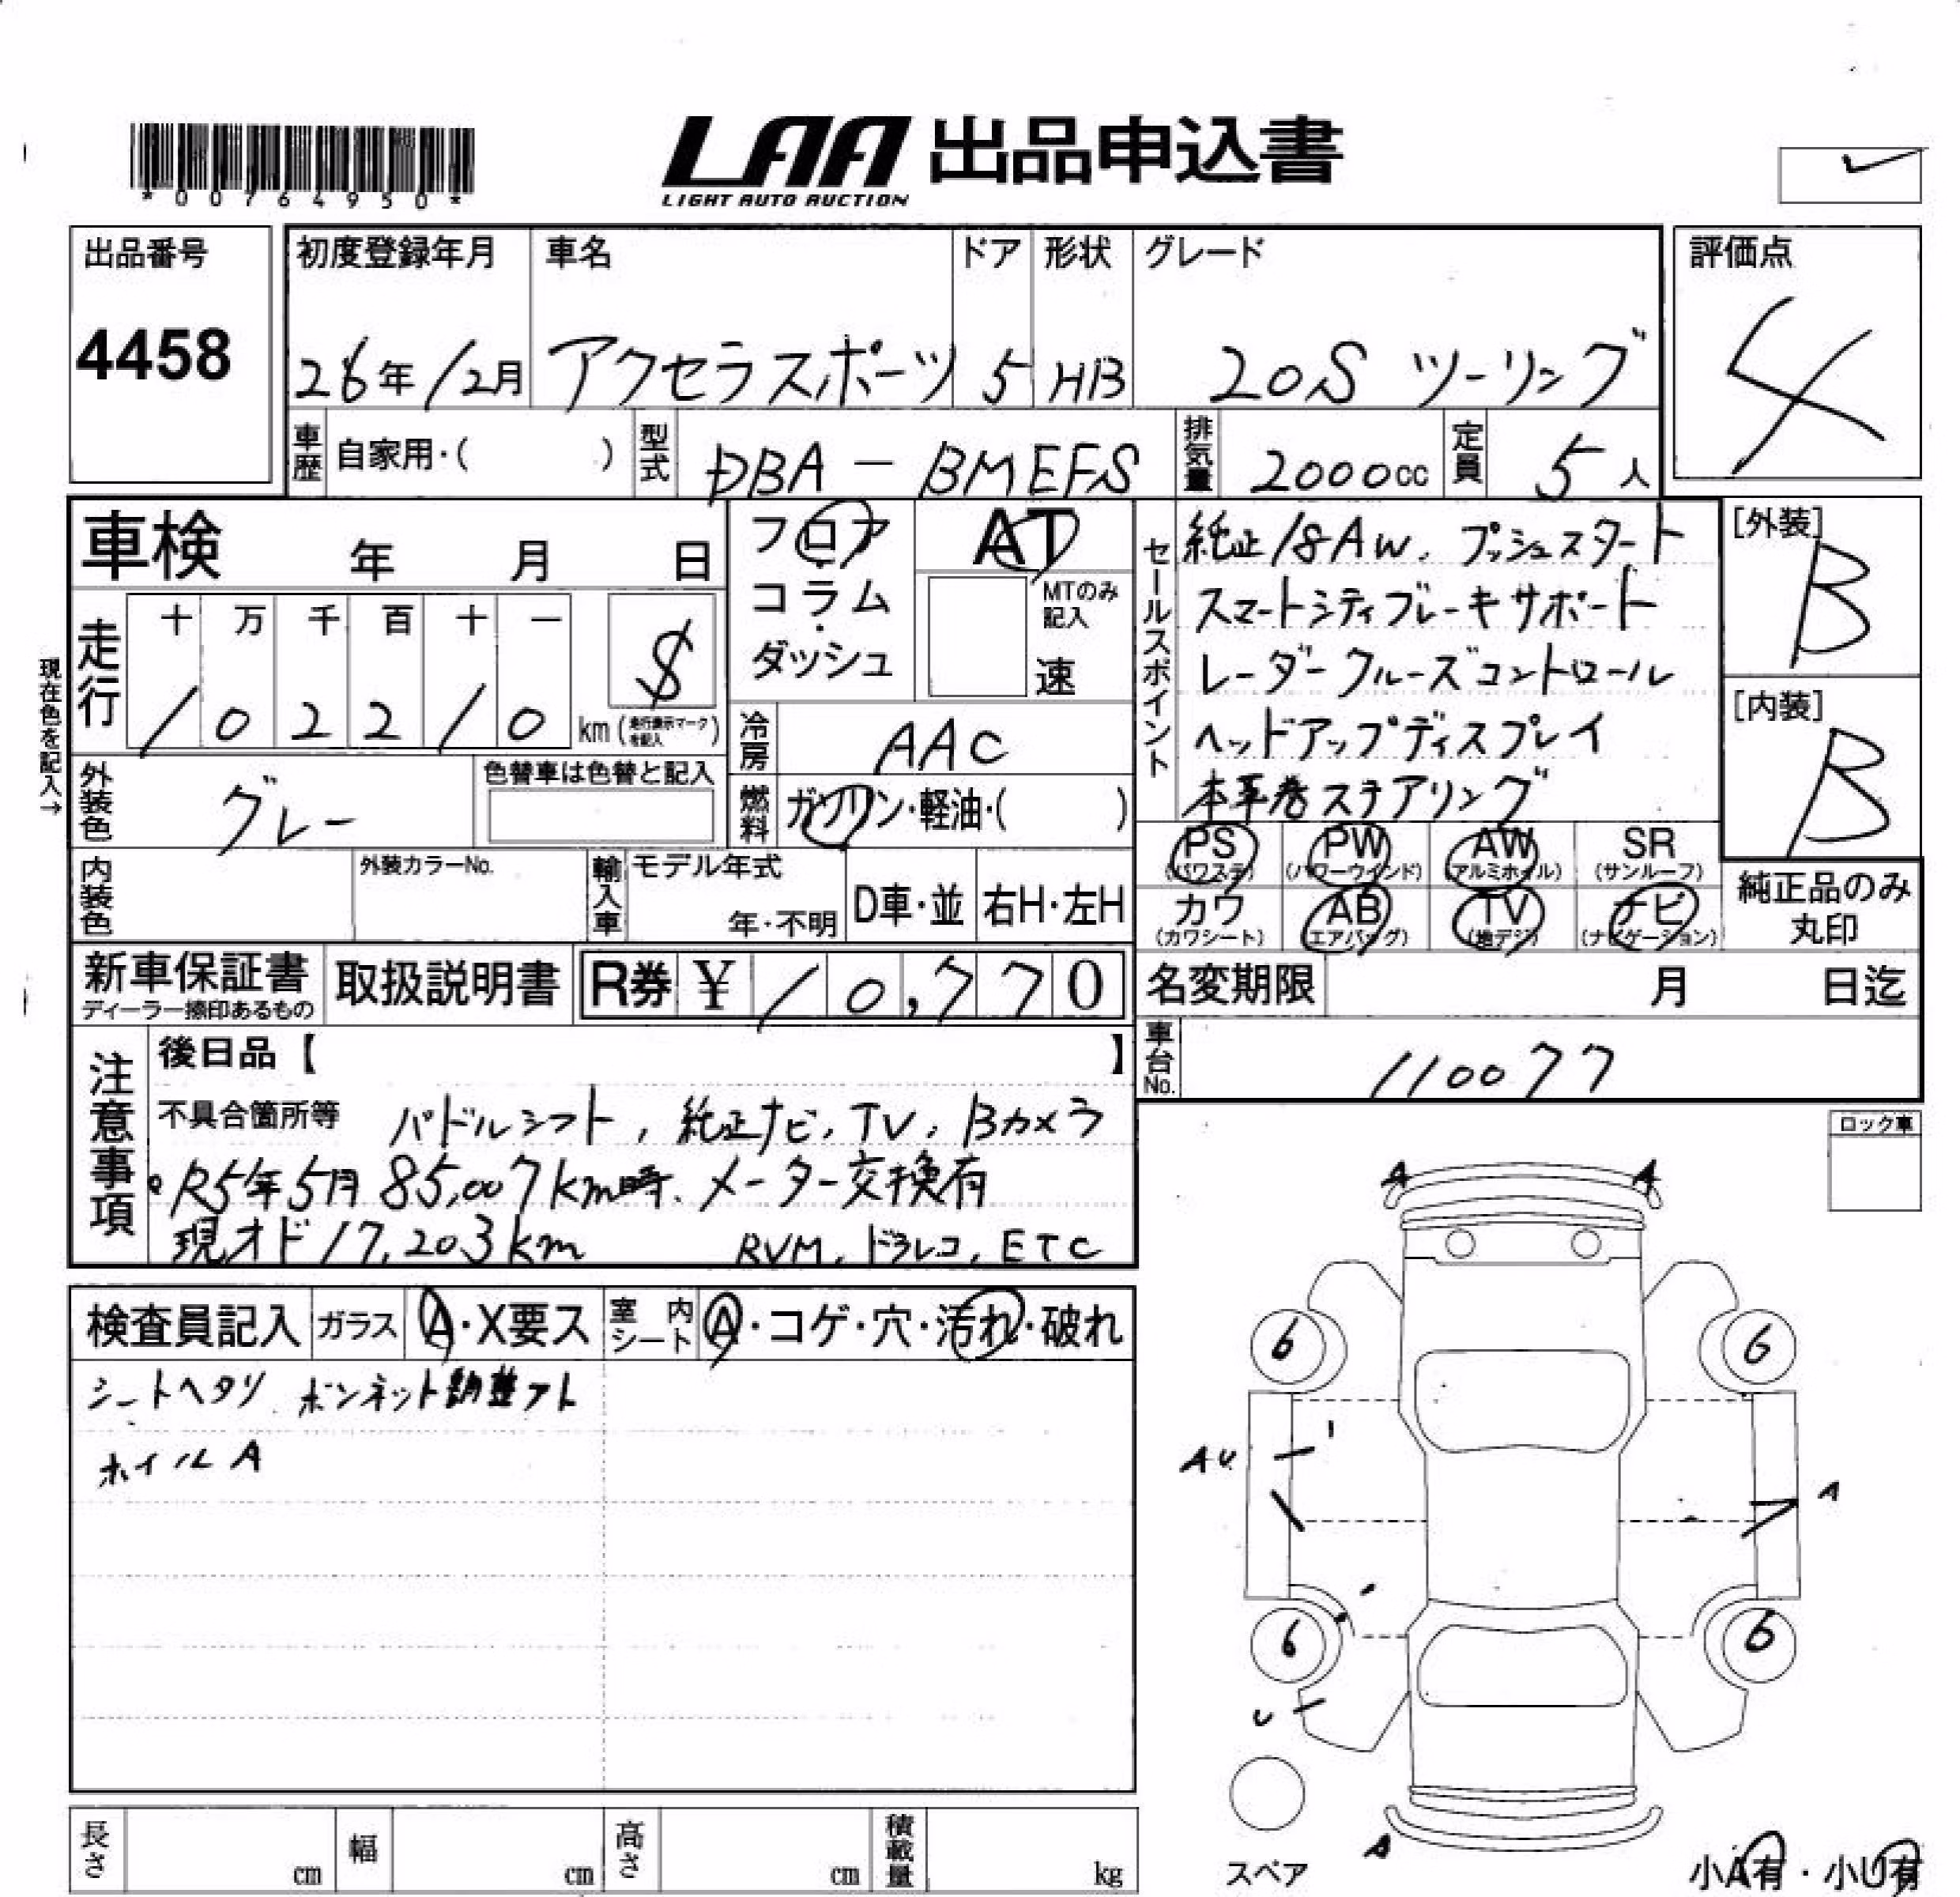 *00764950*
LAA 出品申込書
LIGHT AUTO AUCTION
出品番号
4458
初度登録年月 車名 ドア 形状 グレード
26年12月 アクセラスポーツ 5 HB 20S ツーリング
評価点
4
車歴 自家用・( ) 型式 DBA - BMEFS 排気量 2000cc 定員 5人
車検 年 月 日
フロア
コラム
ダッシュ
AT
MTのみ
記入
速
走行 十 万 千 百 十 一
1 0 2 2 1 0 $ km (走行表示マークを記入)
現在色を記入→
冷房 AAC
外装色 グレー 色替車は色替と記入
燃料 ガソリン・軽油・( )
内装色 外装カラーNo.
輸入車 モデル年式 年・不明 D車・並 右H・左H
セールスポイント
純正18AW. プッシュスタート
スマートシティブレーキサポート
レーダークルーズコントロール
ヘッドアップディスプレイ
本革巻ステアリング
[外装]
B
[内装]
B
PS (パワステ) PW (パワーウインド) AW (アルミホイル) SR (サンルーフ)
カワ (カワシート) AB (エアバッグ) TV (地デジ) ナビ (ナビゲーション)
純正品のみ
丸印
新車保証書
ディーラー捺印あるもの
取扱説明書 R券 ¥10,770
名変期限 月 日迄
車台No. 110077
注意事項
後日品【 】
不具合箇所等 パドルシフト, 純正ナビ, TV, Bカメラ
・R5年5月 85,007km時、メーター交換有
現オド17,203km RVM, ドラレコ, ETC
ロック車
検査員記入 ガラス A・X要ス 室内シート A・コゲ・穴・汚れ・破れ
シートヘタリ ボンネット調整アト
ホイルA
A A
6 6
AU
A
6 6
U
A
スペア
小A有・小U有
長さ cm 幅 cm 高さ cm 積載量 kg